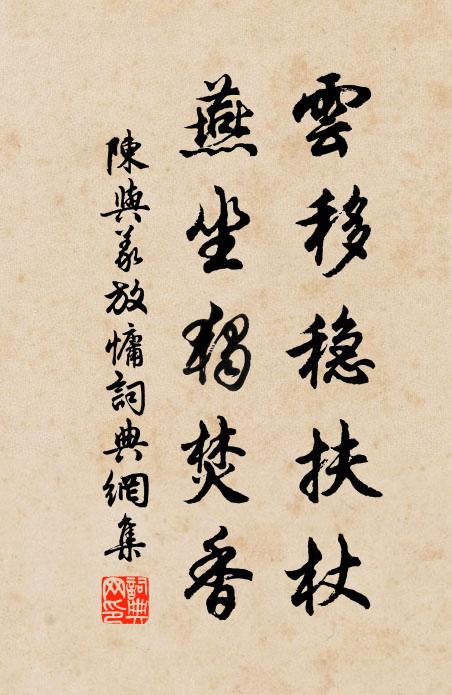 雲移穩扶杖
燕坐獨焚香
陳與義放慵詞典網集
詞典網印